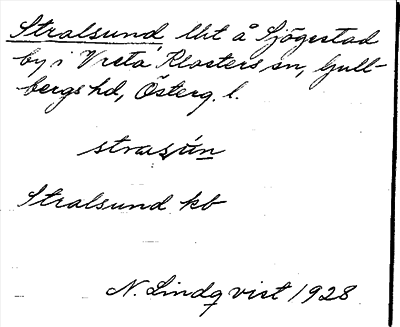 Stralsund, lht å Sjögestad
by i Vreta Klosters sn, Gull-
bergs hd, Österg. l.
strasún
Stralsund kb
N. Lindqvist 1928